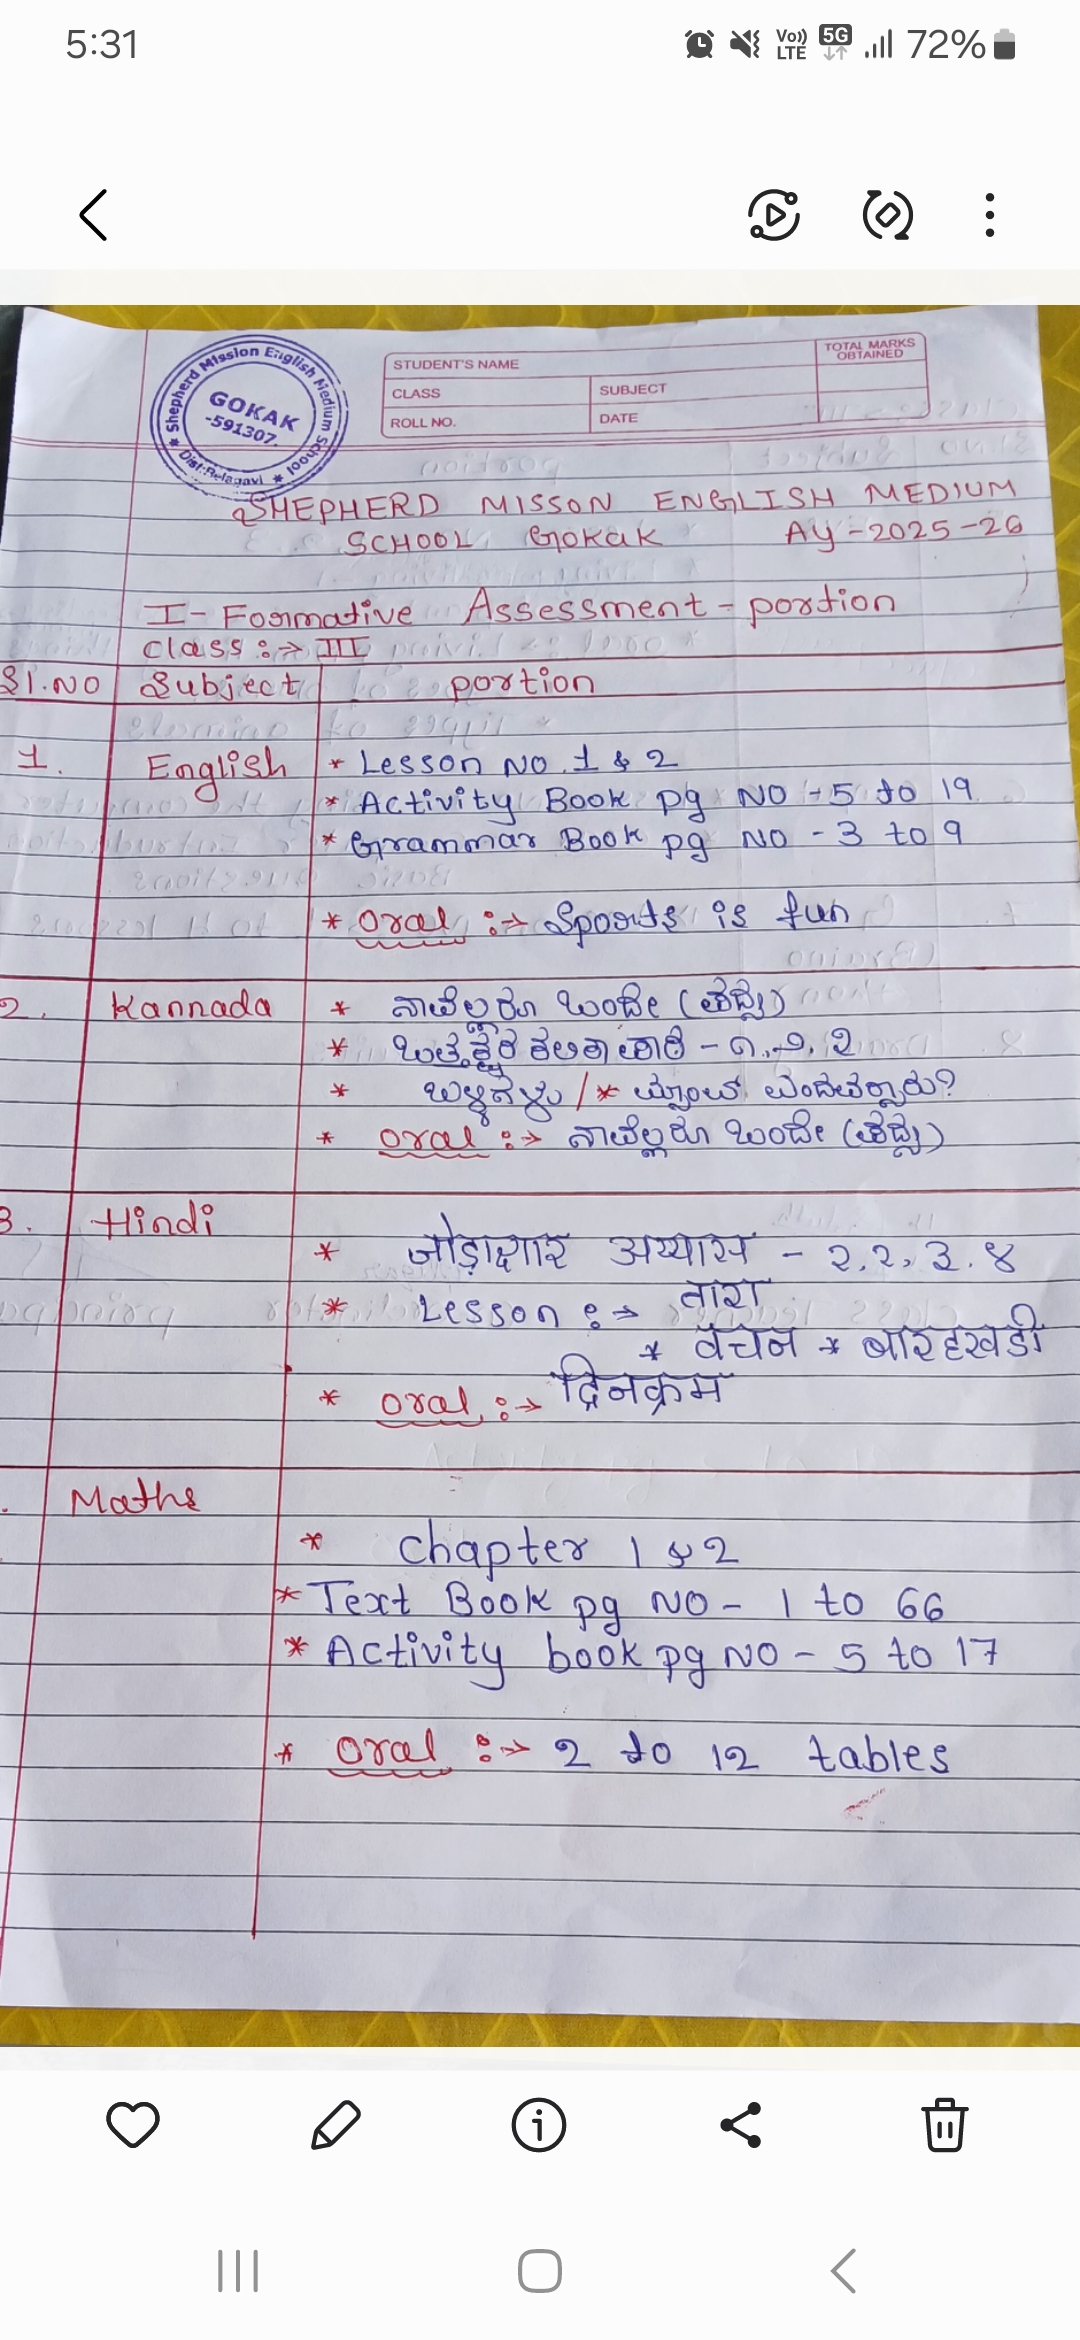 5:31
Vo)) LTE 5G 72%
Shepherd Mission English Medium School
GOKAK
-591307.
Dist:Belagavi
STUDENT'S NAME
TOTAL MARKS OBTAINED
CLASS
SUBJECT
ROLL NO.
DATE
SHEPHERD MISSON ENGLISH MEDIUM
SCHOOL GOKAK AY-2025-26
I- Formative Assessment - portion
Class :→ III
Sl.NO Subject portion
1. English * Lesson NO. 1 & 2
* Activity Book pg NO - 5 to 19
* Grammar Book pg NO - 3 to 9
* Oral :→ Sports is fun
2. Kannada * ನಾವೆಲ್ಲರೂ ಒಂದೇ (ಪದ್ಯ)
* ಒತ್ತಕ್ಷರ ಕಲಿಕಾ ಹಾಳೆ - ೧, ೨, 2
* /*
* Oral :→ ನಾವೆಲ್ಲರೂ ಒಂದೇ (ಪದ್ಯ)
3. Hindi
* अभ्यास - २, २, ३, ४
* Lesson :→ तारा
* वचन * बारहखडी
* Oral :→ दिनक्रम
Maths
* Chapter 1 & 2
* Text Book pg NO - 1 to 66
* Activity book pg NO - 5 to 17
* Oral :→ 2 to 12 tables